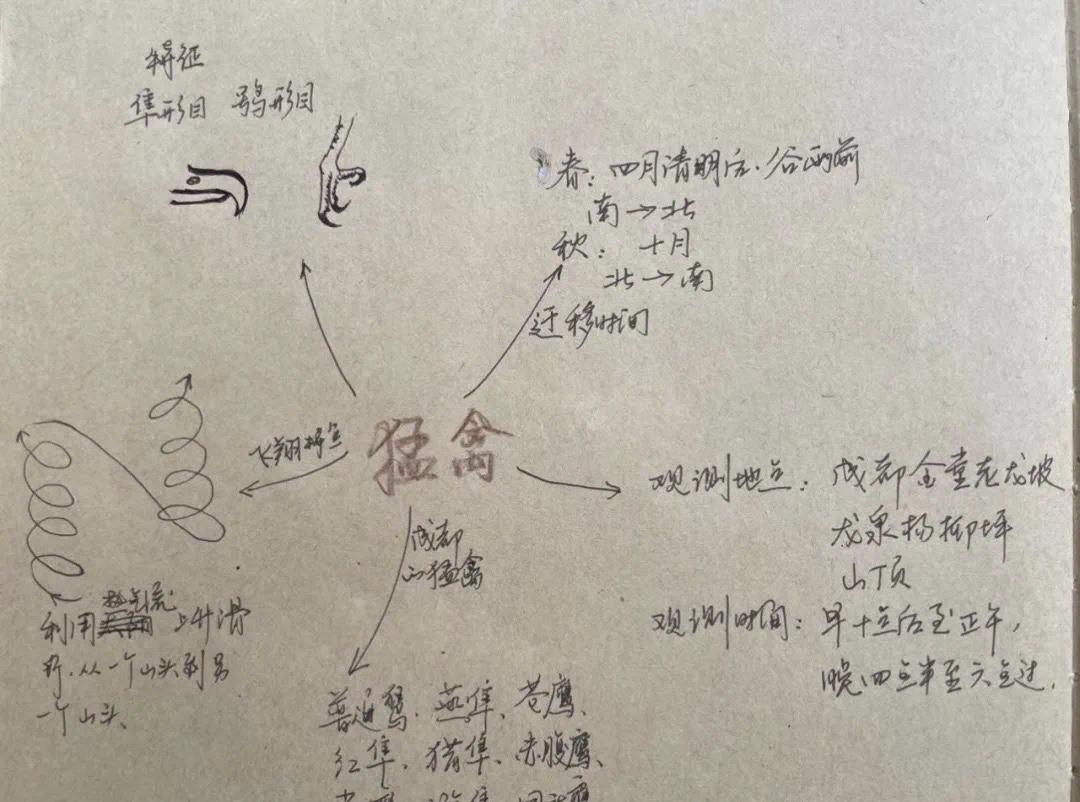 特征
隼形目 鸮形目
春：四月清明后、谷雨前
南→北
秋：十月
北→南
迁移时间
猛禽
飞翔特点
利用热气流上升滑
行，从一个山头到另
一个山头、
成都
的猛禽
普通鵟、燕隼、苍鹰、
红隼、猎隼、赤腹鹰、
观测地点：成都金堂老龙坡
龙泉杨柳坪
山顶
观测时间：早十点后至正午，
晚四点半至六点过.